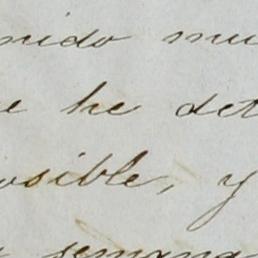 nido mu
e he det
osible, y
semana